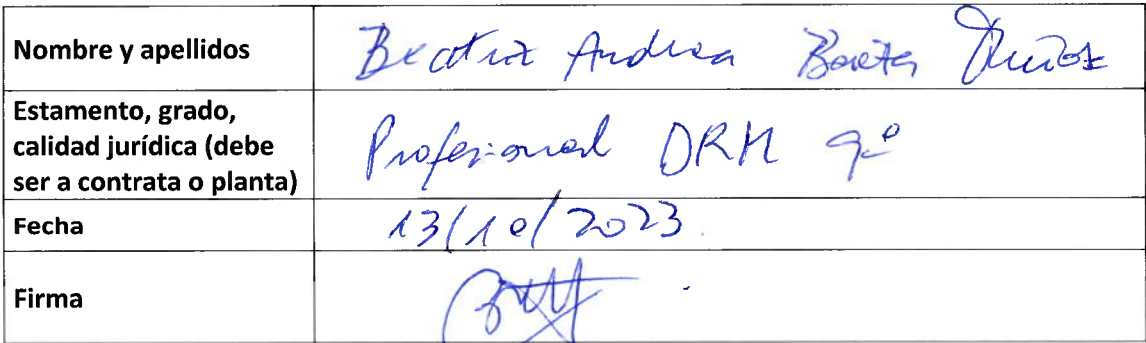 Nombre y apellidos
Beatriz Andrea Muñoz
Estamento, grado,
calidad jurídica (debe
ser a contrata o planta)
Profesional DRH 9º
Fecha
13/10/2023
Firma